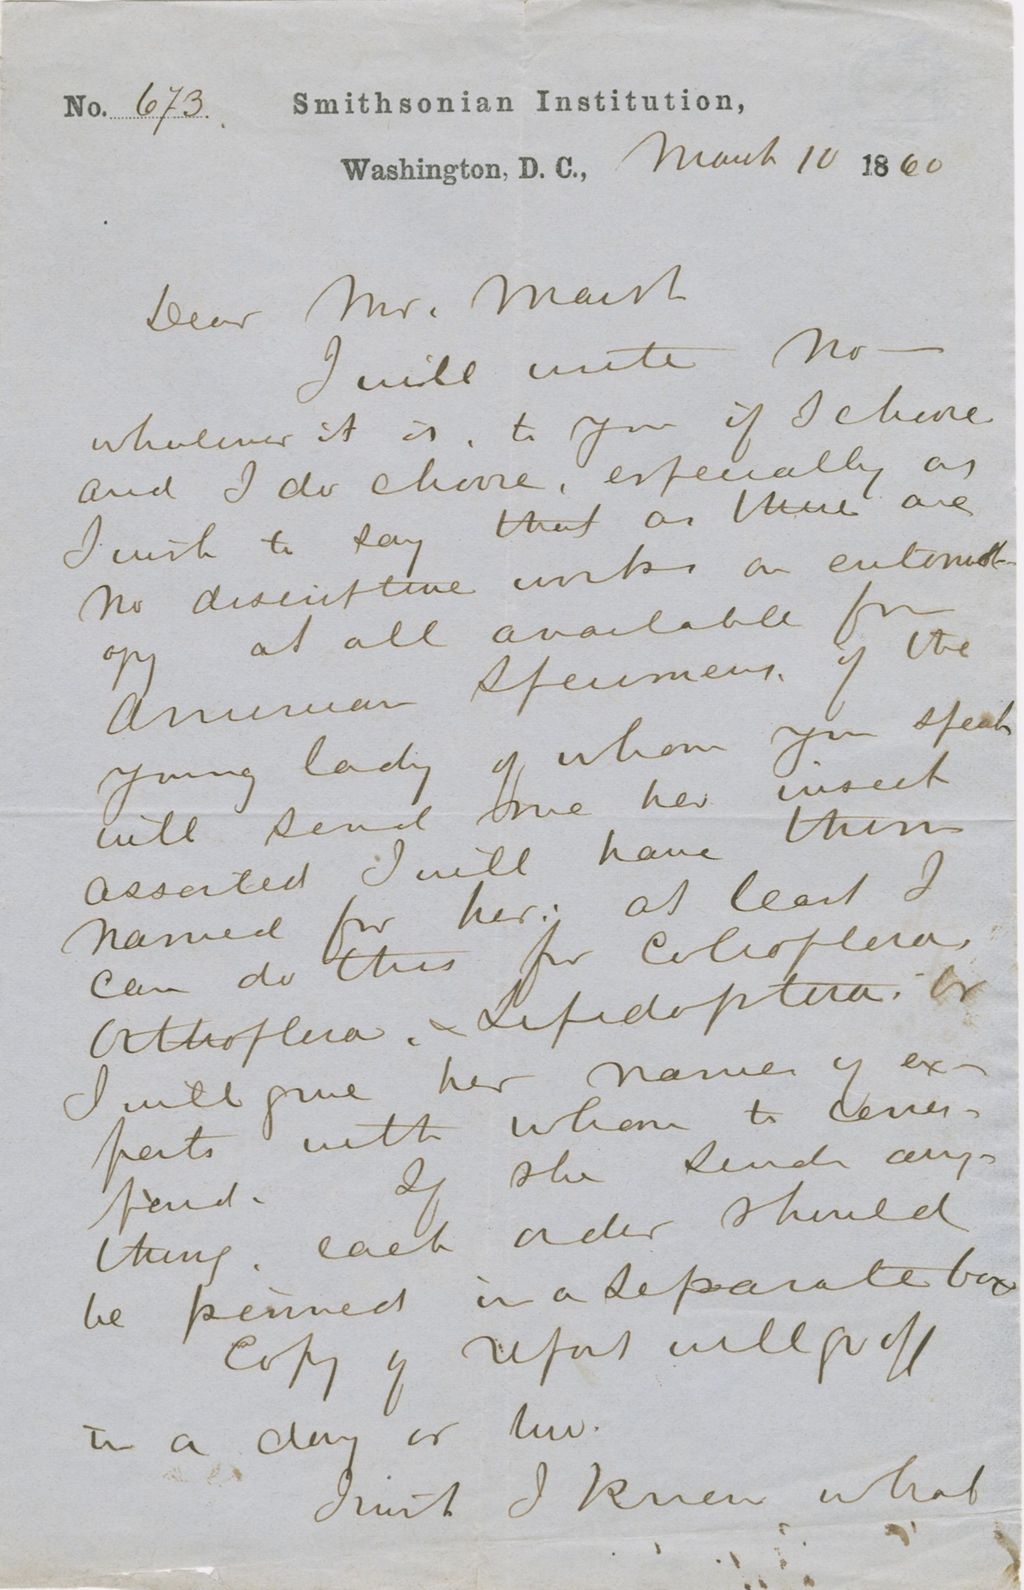 No. 673. Smithsonian Institution,
Washington, D. C., March 10 1860
Dear Mr. Marsh
I will write No—
whatever it is, to you if I choose
and I do choose, especially as
I wish to say that as there are
no descriptive works on entomol-
ogy at all available for
American specimens, if the
young lady of whom you speak
will send me her insect
assorted I will have them
named for her; at least I
can do this for Coleoptera,
Orthoptera, & Lepidoptera. Or
I will give her names of ex-
perts with whom to corres-
pond. If she sends any-
thing, each order should
be pinned in a separate box
Copy of report will go off
in a day or two.
I wish I knew what